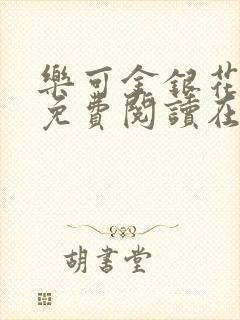 樂可金銀花
免費閱讀在
胡書堂